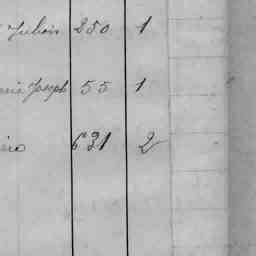 Julien 250 1
Joseph 55 1
631 2